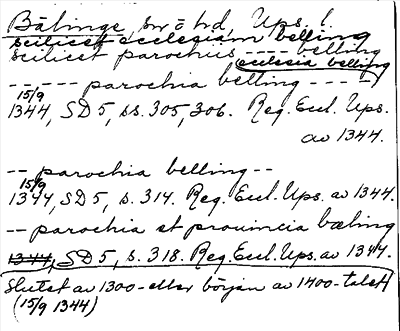 Bälinge, sn o hd, Ups. l.
scilicet ecclesiam belling
scilicet parochiis ---- belling
ecclesia belling
------ parochia belling -----
15/9
1344, SD 5, ss. 305, 306. Reg. Eccl. Ups.
av 1344.
-- parochia belling --
15/9
1344, SD 5, s. 314. Reg. Eccl. Ups. av 1344.
-- parochia et prouincia bæling
1344, SD 5, s. 318. Reg. Eccl. Ups. av 1344.
Slutet av 1300- eller början av 1400-talet
(15/9 1344)